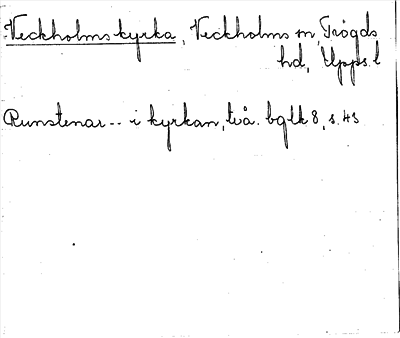 Veckholms kyrka, Veckholms sn, Trögds
hd, Upps. l
Runstenar -- i kyrkan, två. bqlk 8, s. 43